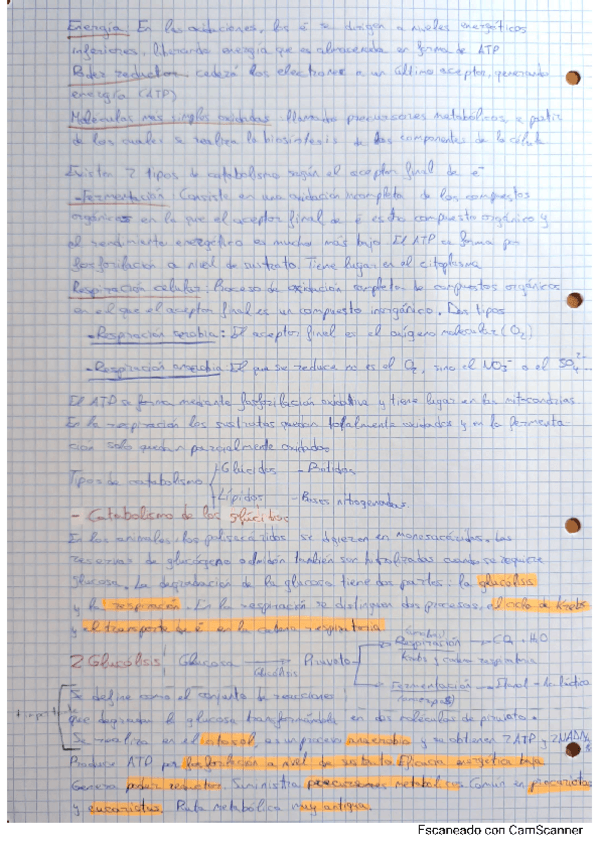 Energía: En las oxidaciones, los é se dirigen a niveles energéticos
inferiores, liberando energía que es almacenada en forma de ATP
Poder reductor: cederá los electrones a un último aceptor, generando
energía (ATP)
Moléculas más simples oxidadas: llamadas precursores metabólicos, a partir
de los cuales se realiza la biosíntesis de los componentes de la célula
Existen 2 tipos de catabolismo según el aceptor final de e-
-Fermentación: Consiste en una oxidación incompleta de los compuestos
orgánicos en la que el aceptor final de é es otro compuesto orgánico y
el rendimiento energético es mucho más bajo. El ATP se forma por
fosforilación a nivel de sustrato. Tiene lugar en el citoplasma
Respiración celular: Proceso de oxidación completa de compuestos orgánicos
en el que el aceptor final es un compuesto inorgánico. Dos tipos
-Respiración aerobia: El aceptor final es el oxígeno molecular (O2)
-Respiración anaerobia: El que se reduce no es el O2, sino el NO3- o el SO4 2-...
El ATP se forma mediante fosforilación oxidativa y tiene lugar en las mitocondrias
En la respiración los sustratos quedan totalmente oxidados y en la fermenta-
ción solo quedan parcialmente oxidados
Tipos de catabolismo Glúcidos - Prótidos
Lípidos - Bases nitrogenadas
- Catabolismo de los glúcidos
En los animales, los polisacáridos se digieren en monosacáridos. Las
reservas de glucógeno almidón también son hidrolizadas cuando se requiere
glucosa. La degradación de la glucosa tiene dos partes: la glucólisis
y la respiración. En la respiración se distinguen dos procesos, el ciclo de Krebs
y el transporte de é en la cadena respiratoria
2 Glucólisis: Glucosa → Glucólisis → Piruvato Respiración → CO2 + H2O
Krebs y cadena respiratoria
Fermentación → Etanol - Ác láctico
Se define como el conjunto de reacciones
que degradan la glucosa transformándola en dos moléculas de piruvato.
Se realiza en el citosol, es un proceso anaerobio y se obtienen 2 ATP y 2 NADH
Produce ATP por fosforilación a nivel de sustrato Eficacia energética baja
Genera poder reductor. Suministra precursores metabólicos Común en procariotas
y eucariotas. Ruta metabólica muy antigua.
Escaneado con CamScanner